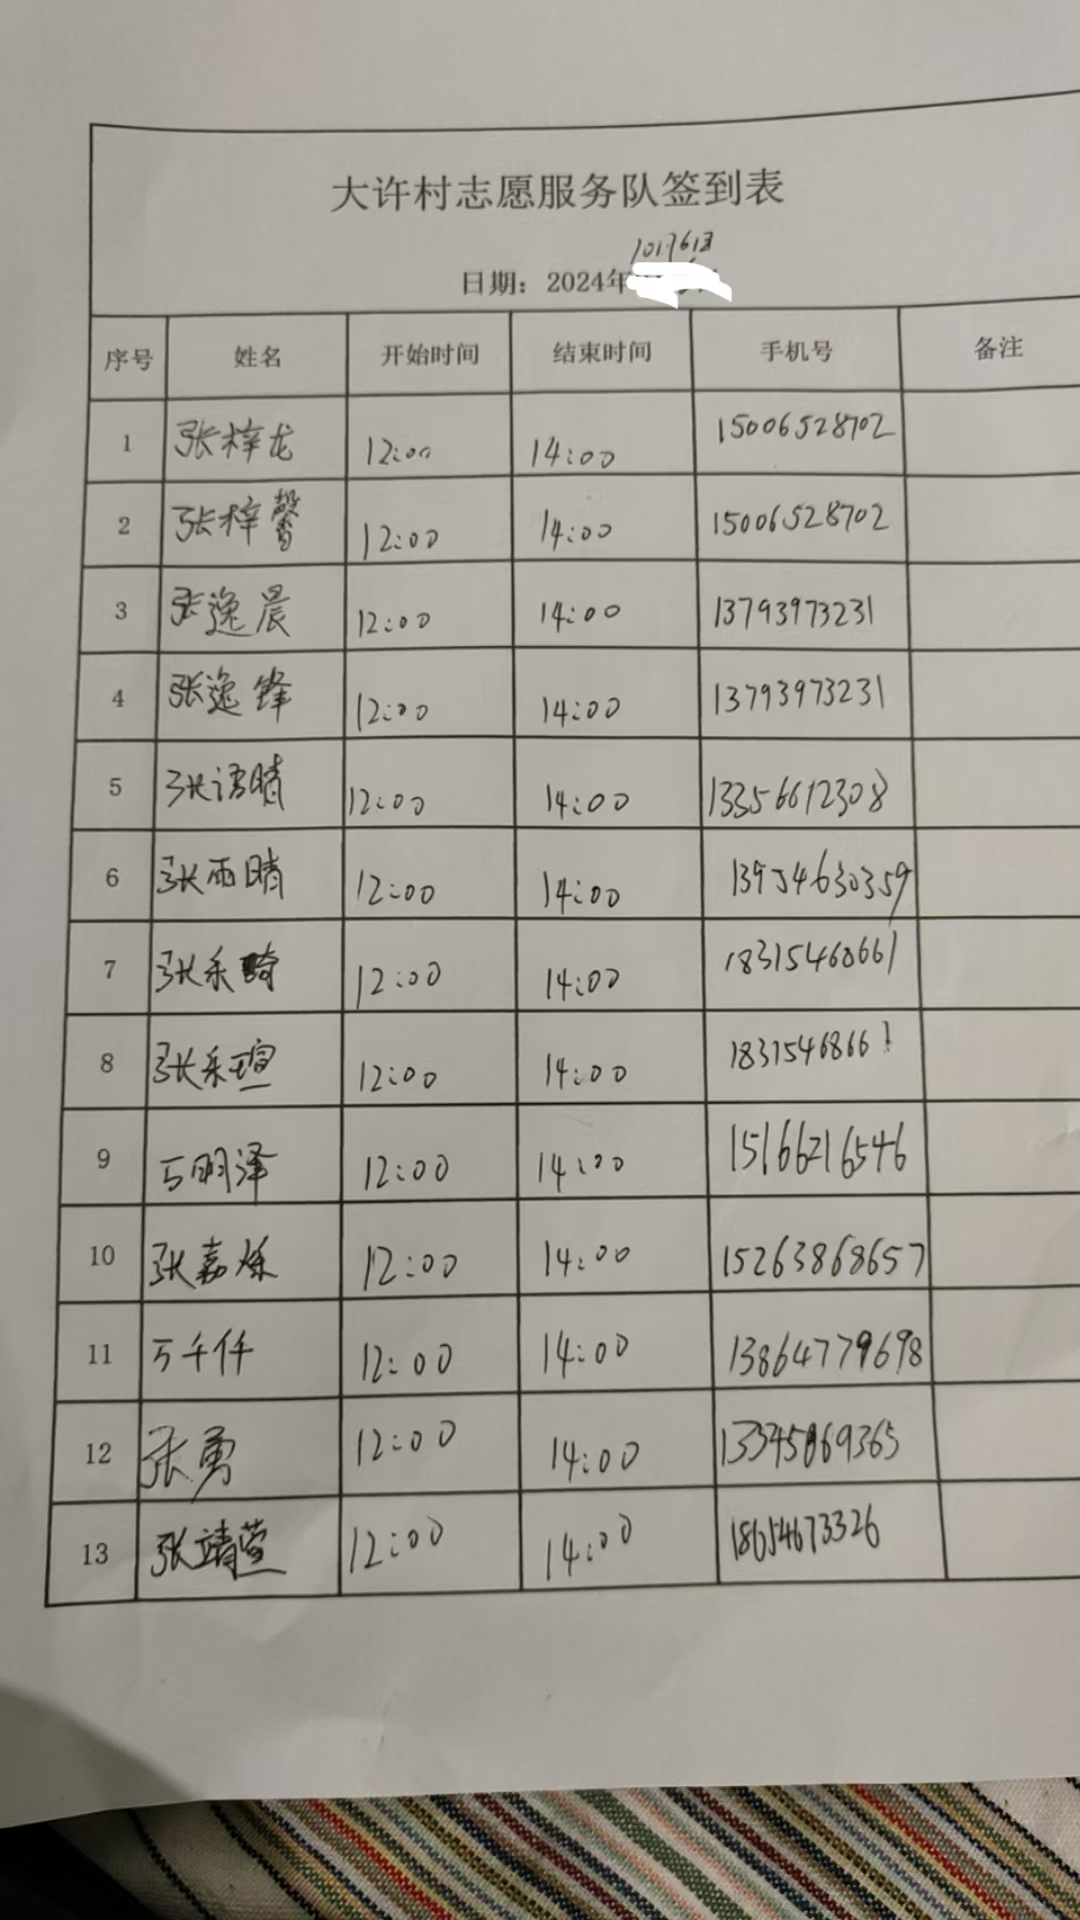 大许村志愿服务队签到表
日期：2024年10月6日
序号 姓名 开始时间 结束时间 手机号 备注
1 张梓龙 12:00 14:00 15006528702
2 张梓馨 12:00 14:00 15006528702
3 张逸晨 12:00 14:00 13793973231
4 张逸锋 12:00 14:00 13793973231
5 张语晴 12:00 14:00 13356612308
6 张雨晴 12:00 14:00 13954630359
7 12:00 14:00 18315468661
8 12:00 14:00 18315468661
9 万明泽 12:00 14:00 15166216546
10 张嘉烁 12:00 14:00 15263868657
11 万千仟 12:00 14:00 13864779698
12 张勇 12:00 14:00 13345869365
13 张靖萱 12:00 14:00 18654673326